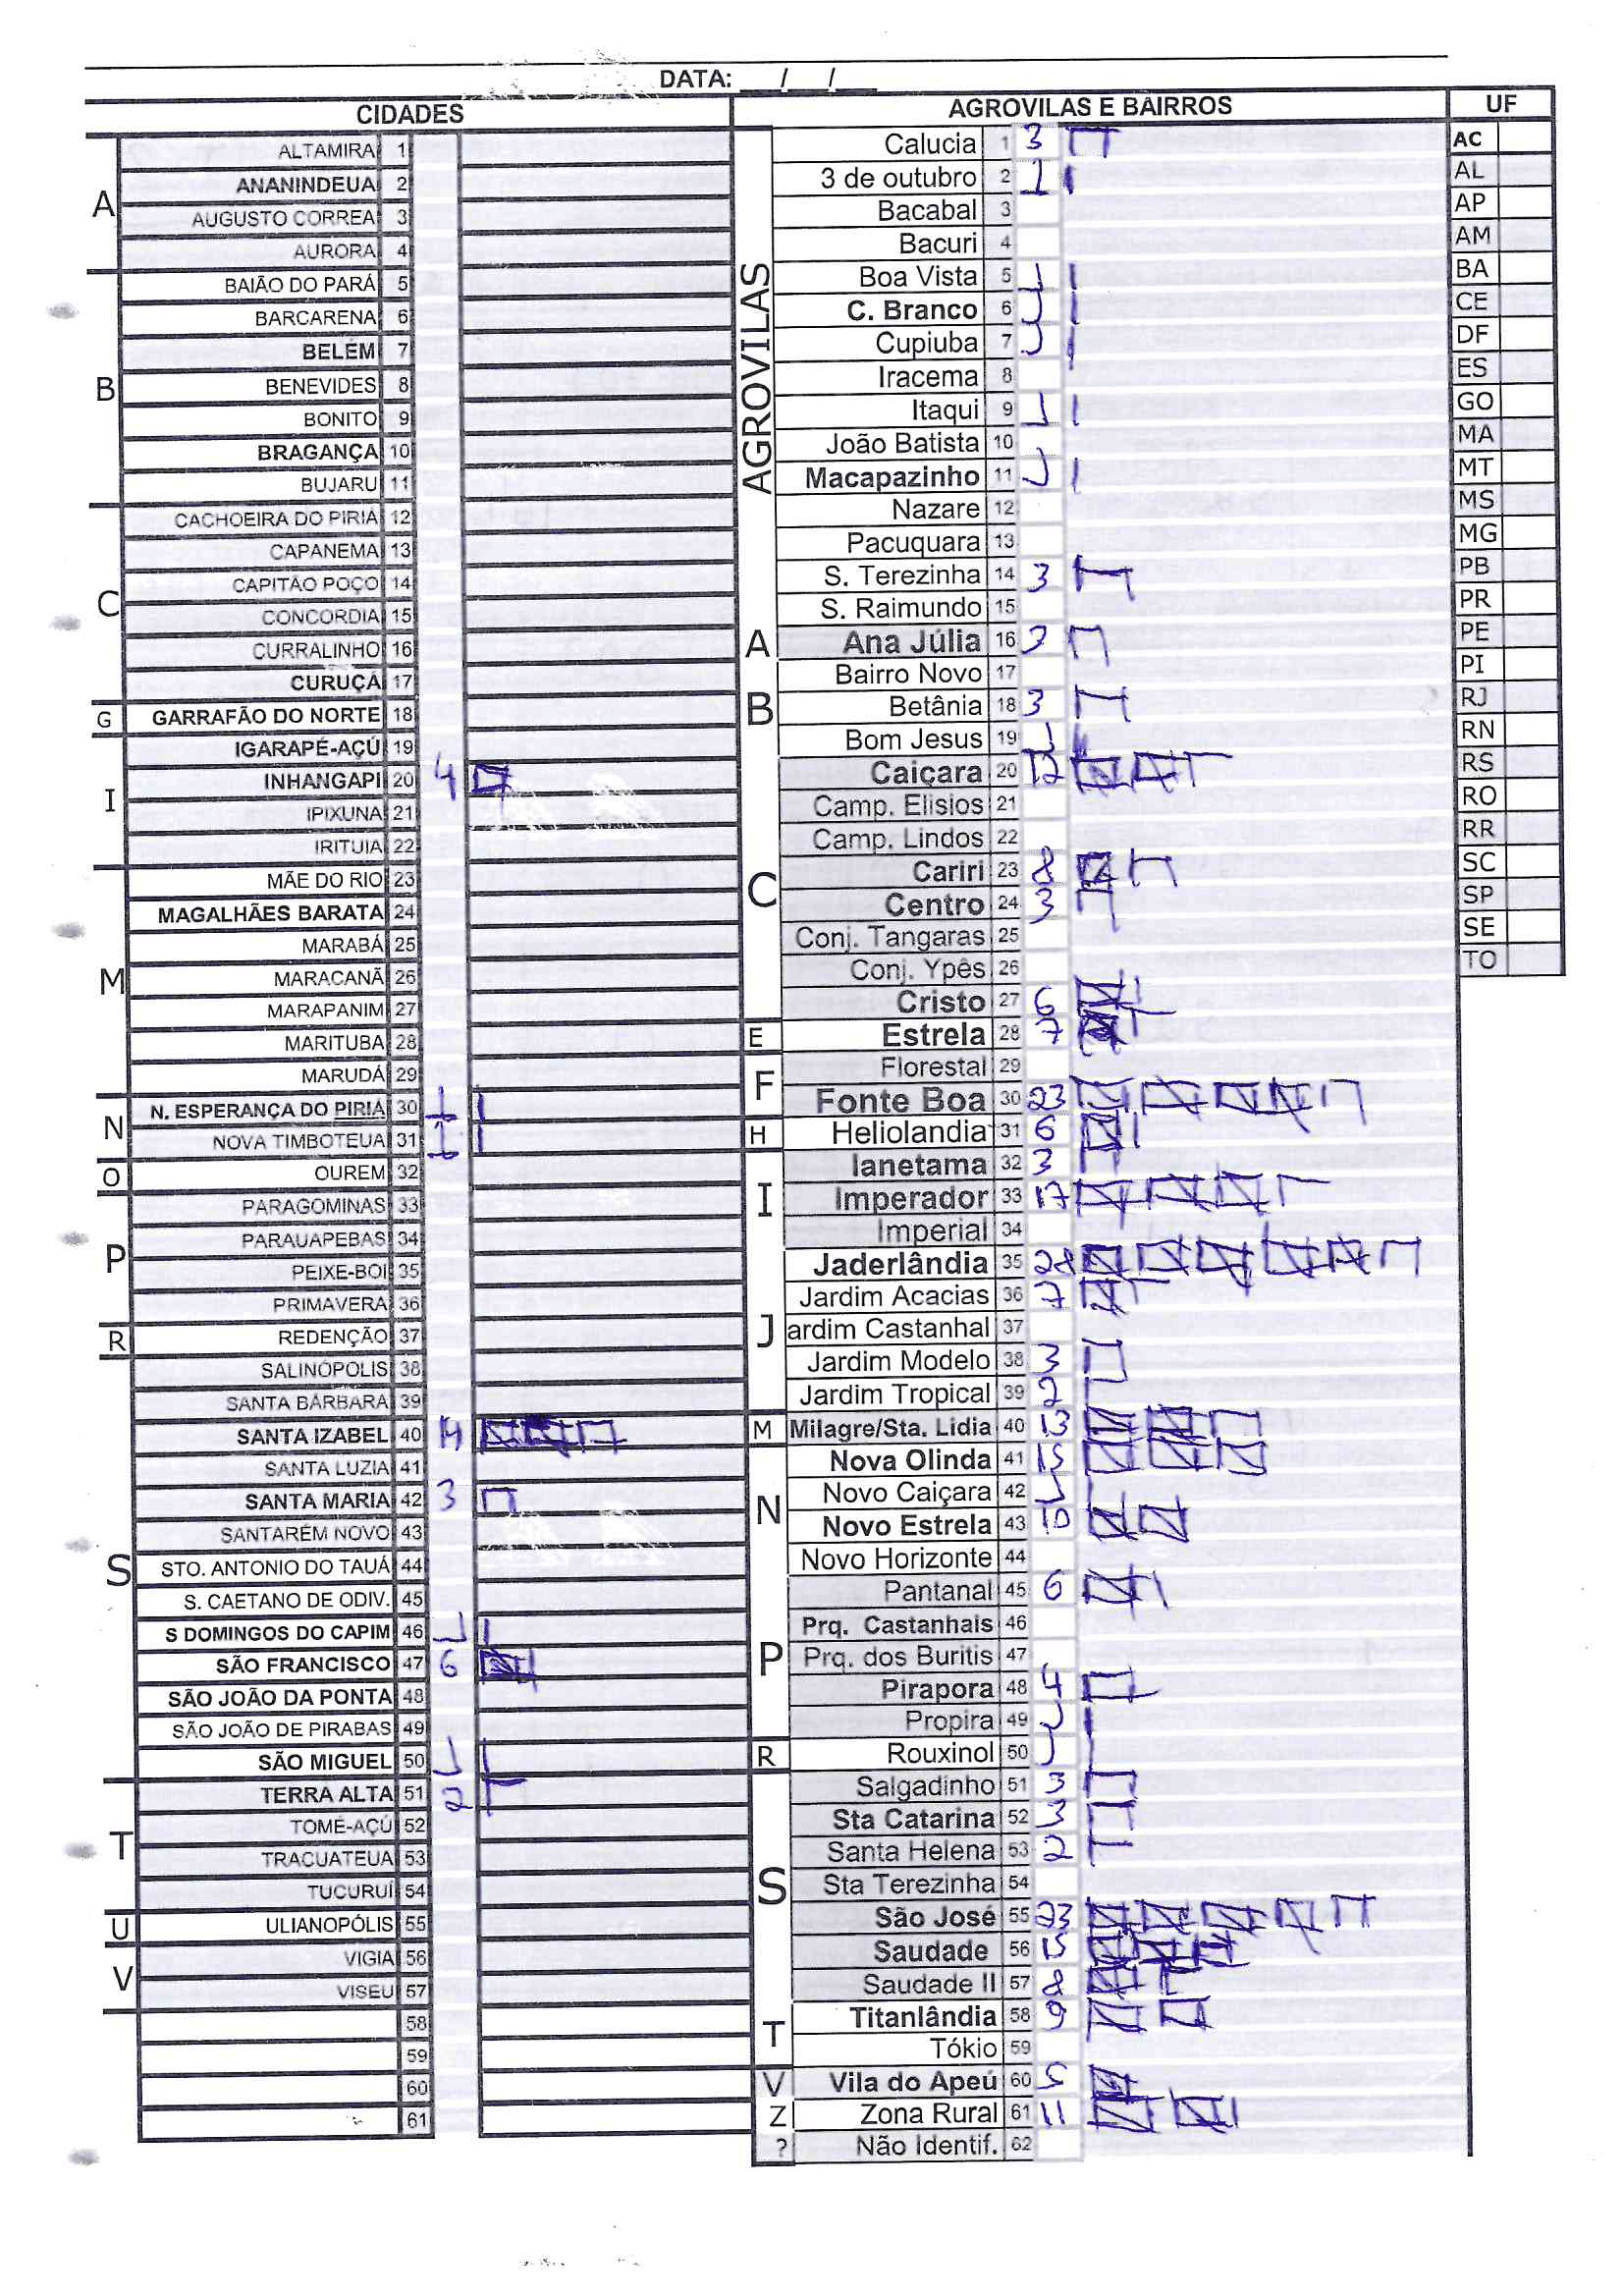 DATA: __/__/__
CIDADES
A
ALTAMIRA 1
ANANINDEUA 2
AUGUSTO CORREA 3
AURORA 4
B
BAIÃO DO PARÁ 5
BARCARENA 6
BELÉM 7
BENEVIDES 8
BONITO 9
BRAGANÇA 10
BUJARU 11
C
CACHOEIRA DO PIRIÁ 12
CAPANEMA 13
CAPITÃO POÇO 14
CONCORDIA 15
CURRALINHO 16
CURUÇÁ 17
G
GARRAFÃO DO NORTE 18
I
IGARAPÉ-AÇÚ 19
INHANGAPI 20 4
IPIXUNA 21
IRITUIA 22
M
MÃE DO RIO 23
MAGALHÃES BARATA 24
MARABÁ 25
MARACANÃ 26
MARAPANIM 27
MARITUBA 28
MARUDÁ 29
N
N. ESPERANÇA DO PIRIÁ 30 1
NOVA TIMBOTEUA 31 1
O
OUREM 32
P
PARAGOMINAS 33
PARAUAPEBAS 34
PEIXE-BOI 35
PRIMAVERA 36
R
REDENÇÃO 37
S
SALINÓPOLIS 38
SANTA BÁRBARA 39
SANTA IZABEL 40
SANTA LUZIA 41
SANTA MARIA 42 3
SANTARÉM NOVO 43
STO. ANTONIO DO TAUÁ 44
S. CAETANO DE ODIV. 45
S DOMINGOS DO CAPIM 46 1
SÃO FRANCISCO 47 6
SÃO JOÃO DA PONTA 48
SÃO JOÃO DE PIRABAS 49
SÃO MIGUEL 50 1
T
TERRA ALTA 51 2
TOMÉ-AÇÚ 52
TRACUATEUA 53
TUCURUÍ 54
U
ULIANOPÓLIS 55
V
VIGIA 56
VISEU 57
58
59
60
61
AGROVILAS E BAIRROS
AGROVILAS
Calucia 1 3
3 de outubro 2 1
Bacabal 3
Bacuri 4
Boa Vista 5 1
C. Branco 6 1
Cupiuba 7 1
Iracema 8
Itaqui 9 1
João Batista 10
Macapazinho 11 1
Nazare 12
Pacuquara 13
S. Terezinha 14 3
S. Raimundo 15
A
Ana Júlia 16 3
Bairro Novo 17
B
Betânia 18 3
Bom Jesus 19 1
C
Caiçara 20 12
Camp. Elisios 21
Camp. Lindos 22
Cariri 23 8
Centro 24 3
Conj. Tangaras 25
Conj. Ypês 26
Cristo 27 6
E
Estrela 28 7
F
Florestal 29
Fonte Boa 30 23
H
Heliolandia 31 6
I
Ianetama 32 3
Imperador 33 17
Imperial 34
J
Jaderlândia 35 28
Jardim Acacias 36 7
ardim Castanhal 37
Jardim Modelo 38 3
Jardim Tropical 39 2
M
Milagre/Sta. Lidia 40 13
N
Nova Olinda 41 15
Novo Caiçara 42 1
Novo Estrela 43 10
Novo Horizonte 44
P
Pantanal 45 6
Prq. Castanhais 46
Prq. dos Buritis 47
Pirapora 48 4
Propira 49 1
R
Rouxinol 50 1
S
Salgadinho 51 3
Sta Catarina 52 3
Santa Helena 53 2
Sta Terezinha 54
São José 55 23
Saudade 56 15
Saudade II 57 8
T
Titanlândia 58 9
Tókio 59
V
Vila do Apeú 60 5
Z
Zona Rural 61 11
?
Não Identif. 62
UF
AC
AL
AP
AM
BA
CE
DF
ES
GO
MA
MT
MS
MG
PB
PR
PE
PI
RJ
RN
RS
RO
RR
SC
SP
SE
TO